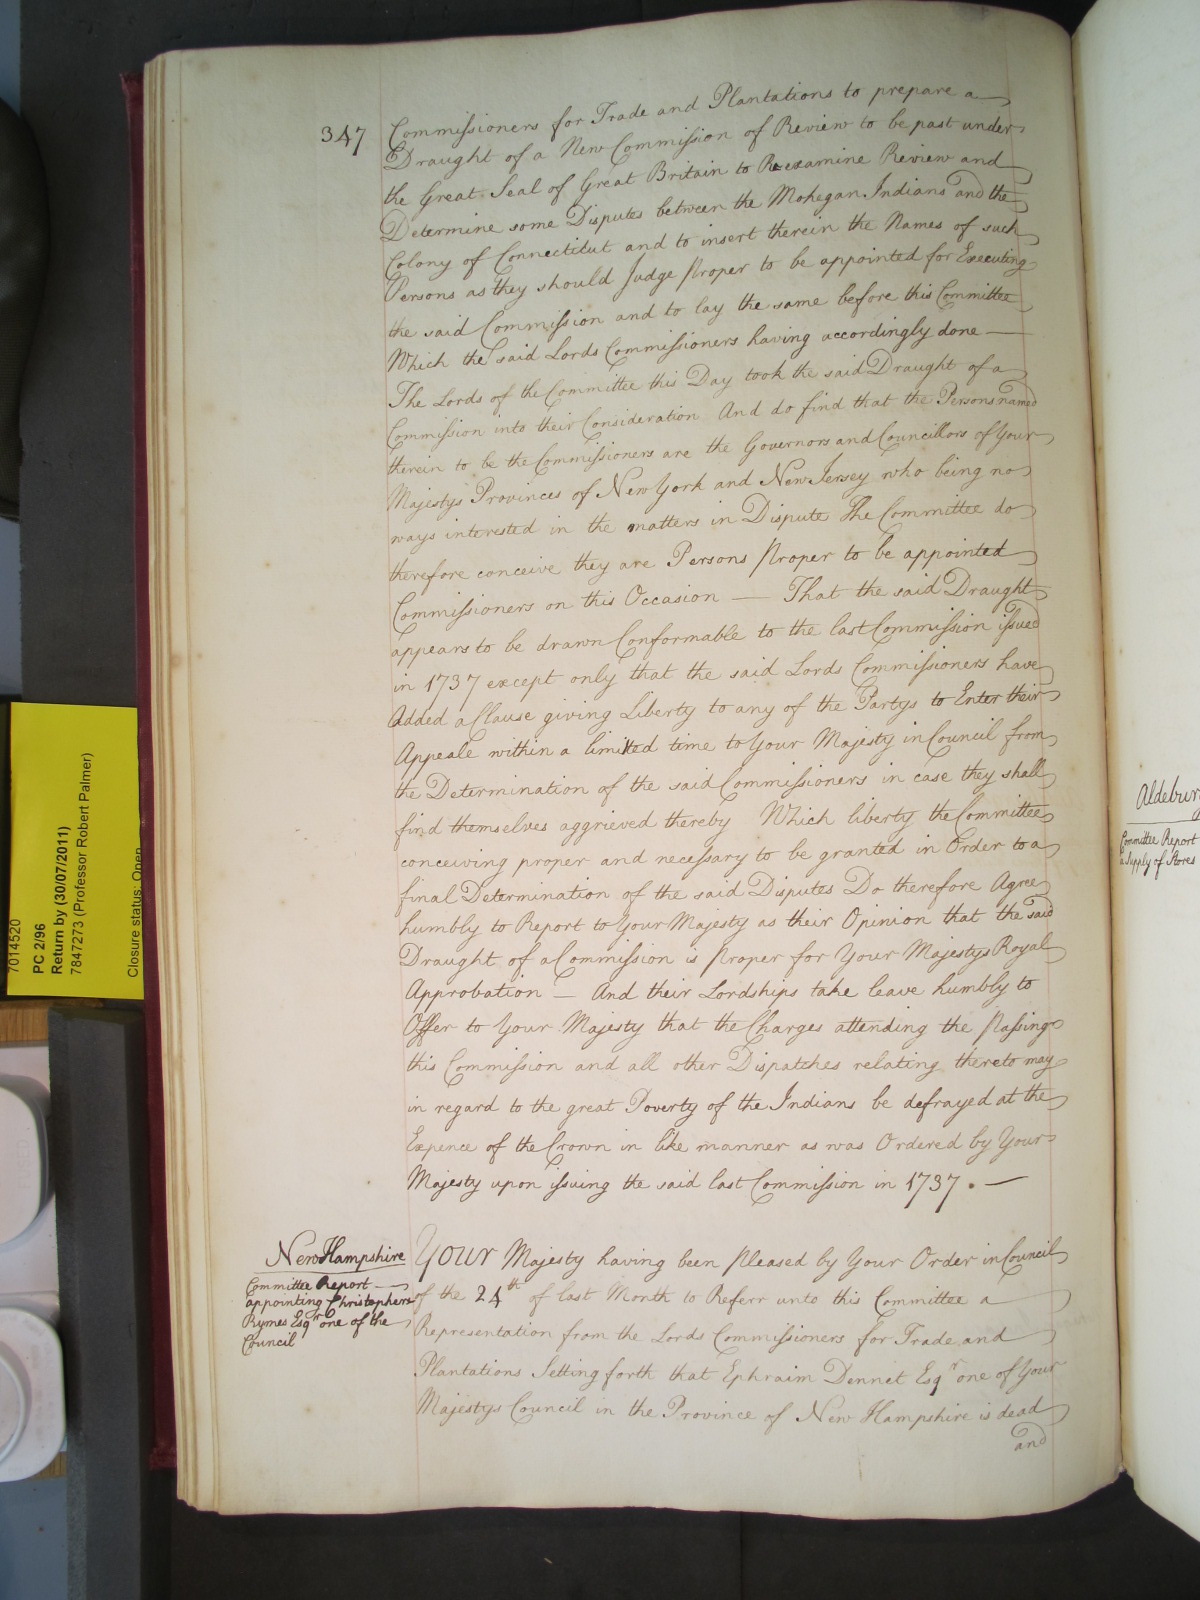 347
Commissioners for Trade and Plantations to prepare a
Draught of a New Commission of Review to be past under
the Great Seal of Great Britain to Reexamine Review and
Determine some Disputes between the Mohegan Indians and the
Colony of Connecticut and to insert therein the Names of such
Persons as they should Judge proper to be appointed for Executing
the said Commission and to lay the same before this Committee
Which the said Lords Commissioners having accordingly done —
The Lords of the Committee this Day took the said Draught of a
Commission into their Consideration And do find that the Persons named
therein to be the Commissioners are the Governors and Councillors of Your
Majestys Provinces of New York and New Jersey who being no
ways interested in the matters in Dispute The Committee do
therefore conceive they are Persons proper to be appointed
Commissioners on this Occasion — That the said Draught
appears to be drawn Conformable to the last Commission issued
in 1737 except only that the said Lords Commissioners have
Added a Clause giving Liberty to any of the Partys to Enter their
Appeale within a limitted time to Your Majesty in Council from
the Determination of the said Commissioners in case they shall
find themselves aggrieved thereby Which liberty the Committee
conceiving proper and necessary to be granted in Order to a
final Determination of the said Disputes Do therefore Agree
humbly to Report to Your Majesty as their Opinion that the said
Draught of a Commission is proper for Your Majestys Royal
Approbation — And their Lordships take leave humbly to
Offer to Your Majesty that the Charges attending the passing
this Commission and all other Dispatches relating thereto may
in regard to the great Poverty of the Indians be defrayed at the
Expence of the Crown in like manner as was Ordered by Your
Majesty upon issuing the said last Commission in 1737. —
New Hampshire
Committee Report —
appointing Christopher
Rymes Esqr. one of the
Council
Your Majesty having been pleased by Your Order in Council
of the 24th of last Month to Referr unto this Committee a
Representation from the Lords Commissioners for Trade and
Plantations Setting forth that Ephraim Dennet Esqr. one of Your
Majestys Council in the Province of New Hampshire is dead
and
Aldebur
Committee Report
a Supply of Stores
7014520
PC 2/96
Return by (30/07/2011)
7847273 (Professor Robert Palmer)
Closure status: Open